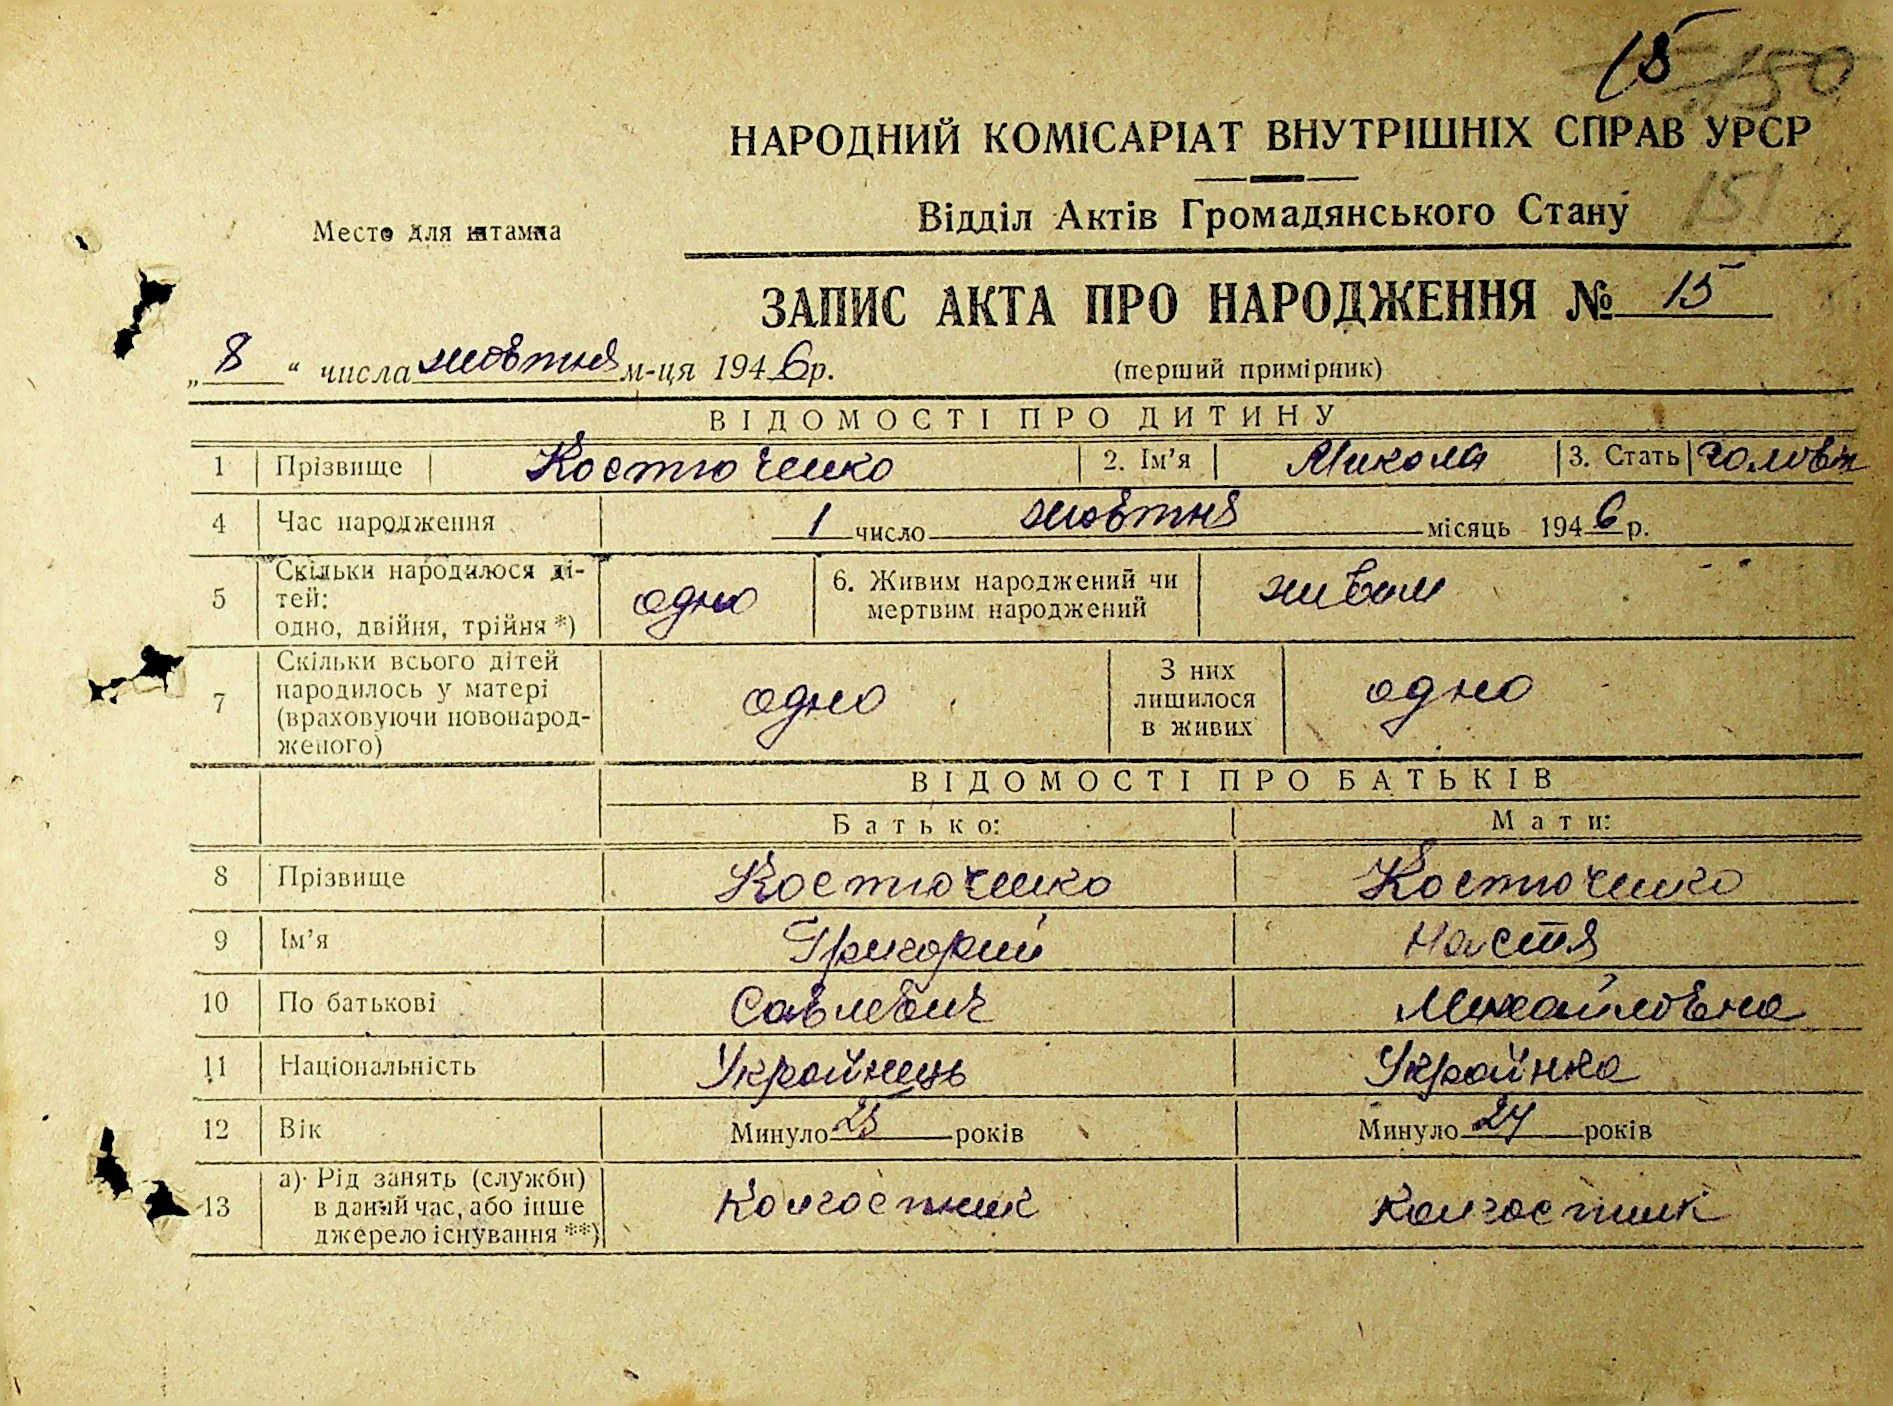 15 150
НАРОДНИЙ КОМІСАРІАТ ВНУТРІШНІХ СПРАВ УРСР
151
Відділ Актів Громадянського Стану
Место для штампа
ЗАПИС АКТА ПРО НАРОДЖЕННЯ № 15
„8“ числа жовтня м-ця 1946р.
(перший примірник)
ВІДОМОСТІ ПРО ДИТИНУ
1 Прізвище Костюченко 2. Ім’я Микола 3. Стать чоловік
4 Час народження 1 число жовтня місяць 1946 р.
5 Скільки народилося ді-
тей:
одно, двійня, трійня *) одно 6. Живим народжений чи
мертвим народжений живим
7 Скільки всього дітей
народилось у матері
(враховуючи новонарод-
женого) одно З них
лишилося
в живих одно
ВІДОМОСТІ ПРО БАТЬКІВ
Батько: Мати:
8 Прізвище Костюченко Костюченко
9 Ім’я Григорий Настя
10 По батькові Савлевич Михайловна
11 Національність Українець Українка
12 Вік Минуло 23 років Минуло 24 років
13 а) Рід занять (служби)
в даний час, або інше
джерело існування **) Колгоспник Колгоспник